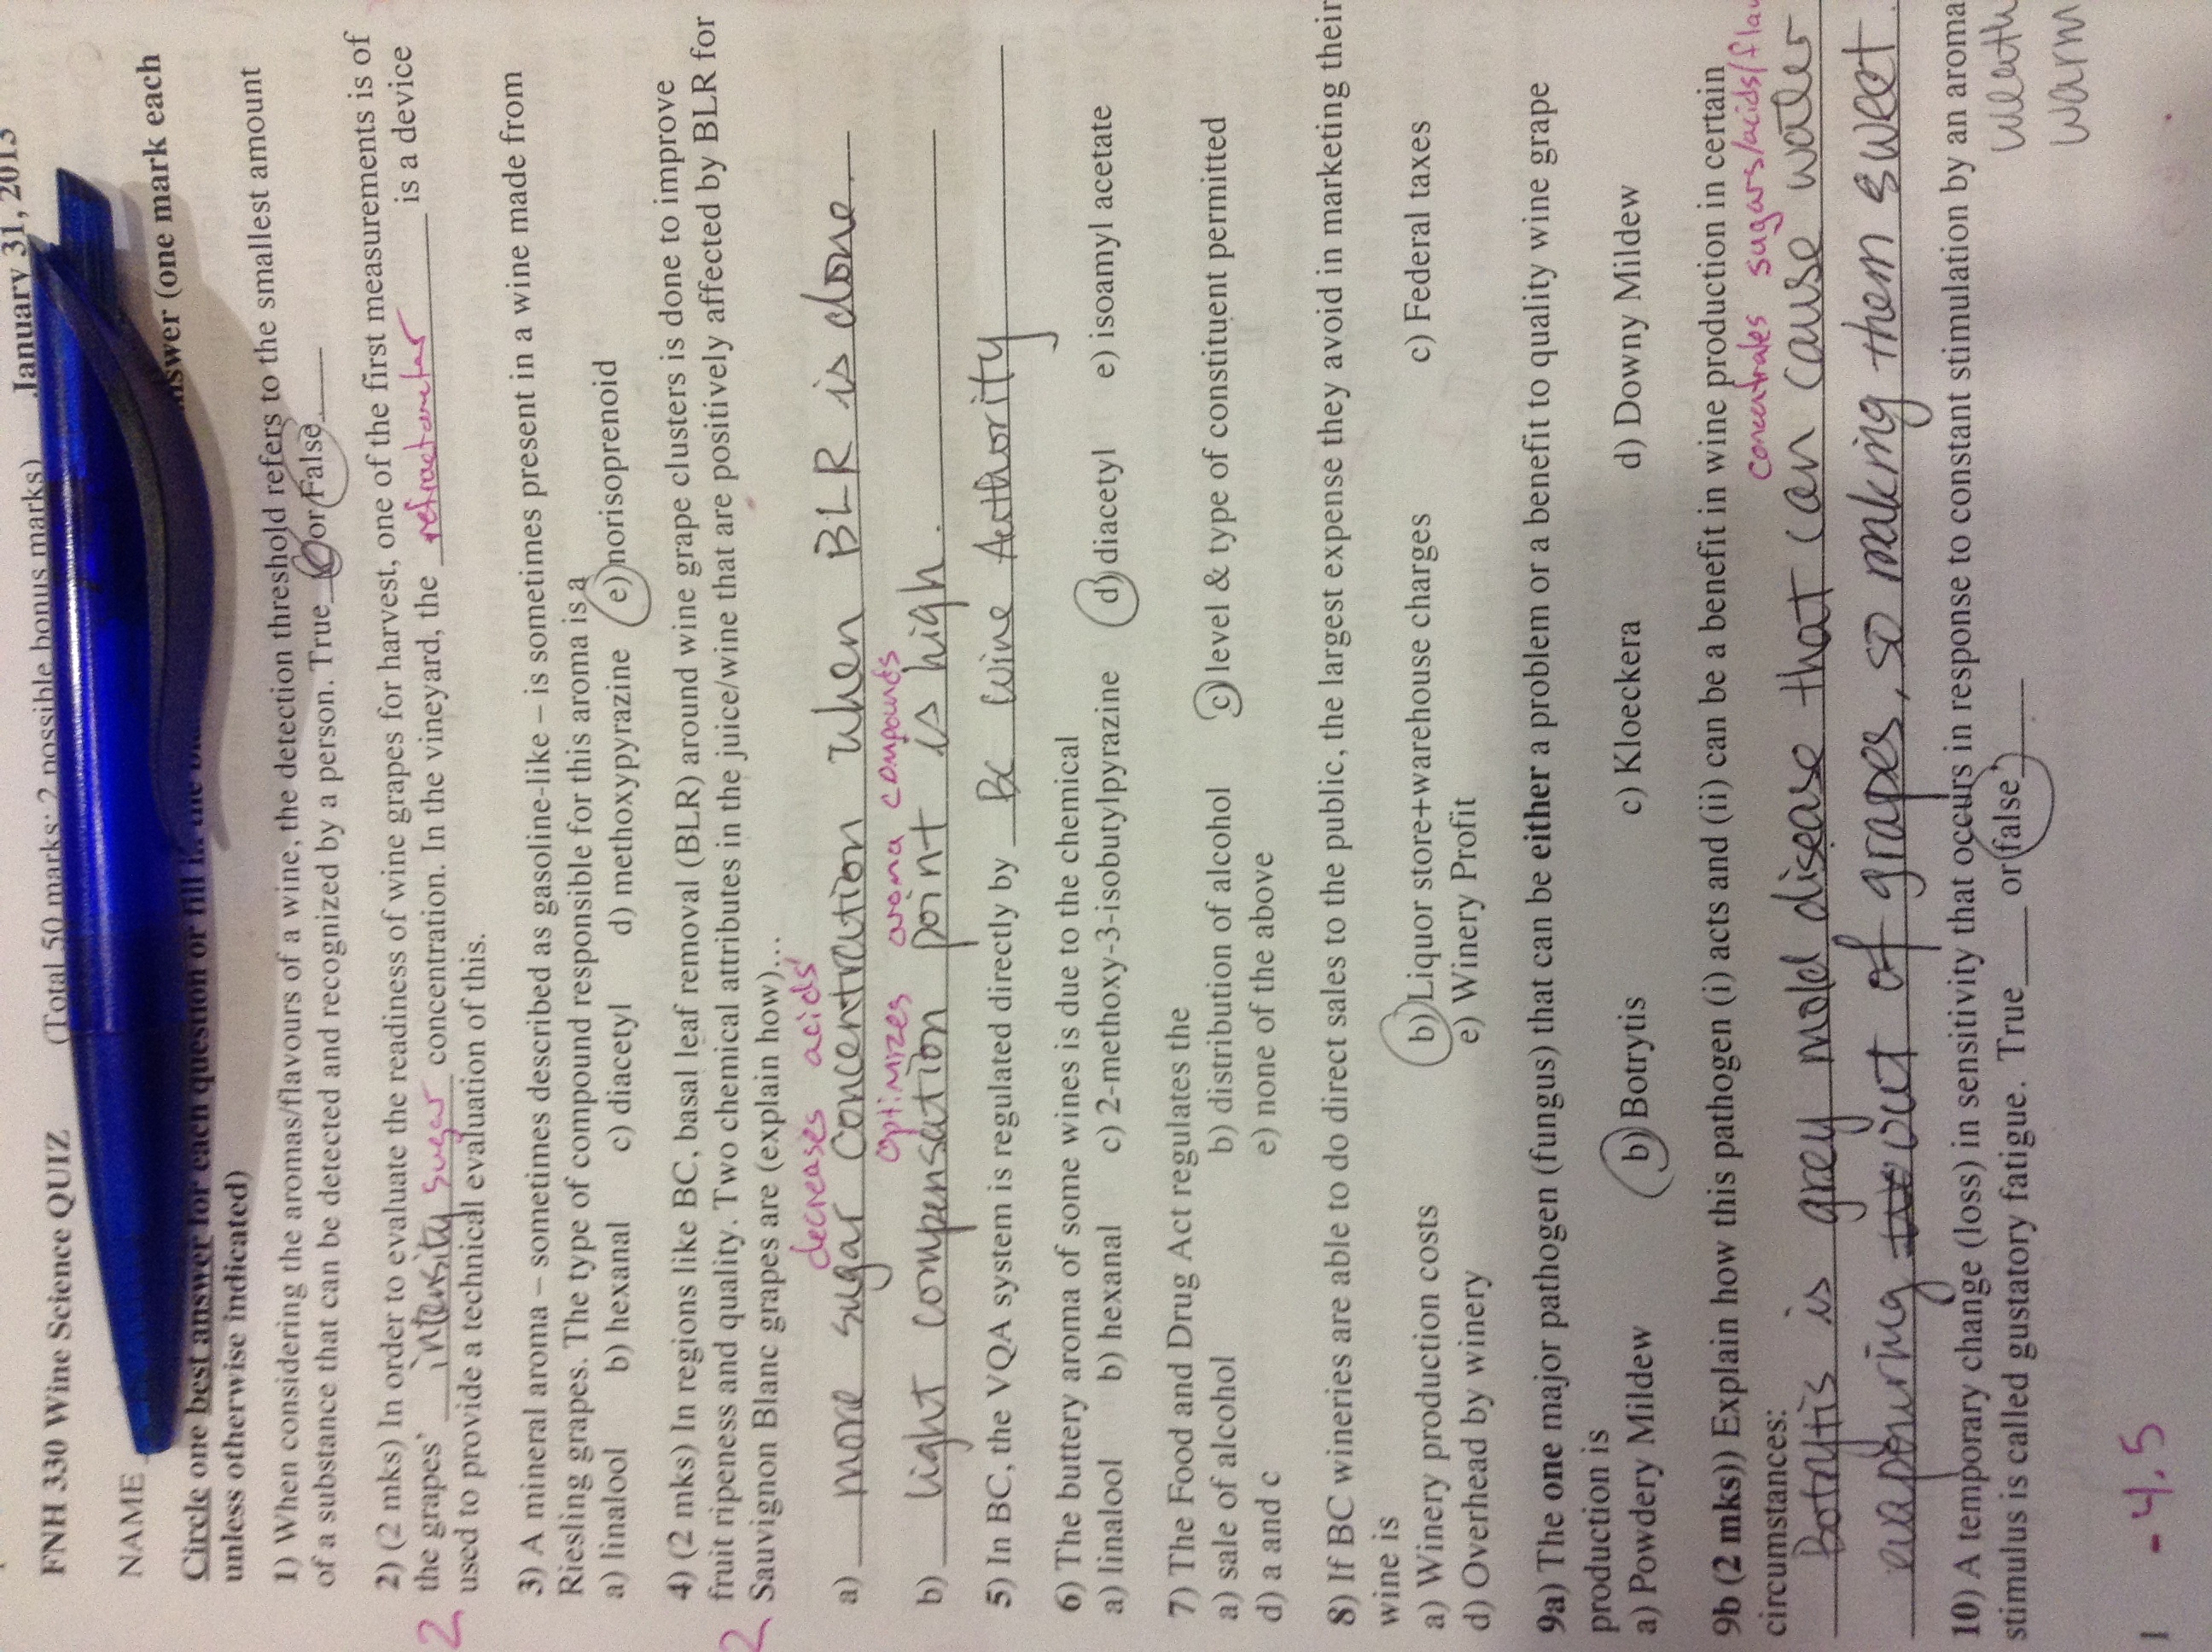 FNH 330 Wine Science QUIZ (Total 50 marks: 2 possible bonus marks) January 31, 2013
NAME
Circle one best answer for each question or fill in the answer (one mark each
unless otherwise indicated)
1) When considering the aromas/flavours of a wine, the detection threshold refers to the smallest amount
of a substance that can be detected and recognized by a person. True or False.
2) (2 mks) In order to evaluate the readiness of wine grapes for harvest, one of the first measurements is of
2 the grapes' intensity sugar concentration. In the vineyard, the refractometer is a device
used to provide a technical evaluation of this.
3) A mineral aroma – sometimes described as gasoline-like – is sometimes present in a wine made from
Riesling grapes. The type of compound responsible for this aroma is a
a) linalool b) hexanal c) diacetyl d) methoxypyrazine e) norisoprenoid
4) (2 mks) In regions like BC, basal leaf removal (BLR) around wine grape clusters is done to improve
fruit ripeness and quality. Two chemical attributes in the juice/wine that are positively affected by BLR for
2 Sauvignon Blanc grapes are (explain how)…
decreases acids
a) more sugar concentration when BLR is done
optimizes aroma compounds
b) light compensation point is high.
5) In BC, the VQA system is regulated directly by BC Wine Authority
6) The buttery aroma of some wines is due to the chemical
a) linalool b) hexanal c) 2-methoxy-3-isobutylpyrazine d) diacetyl e) isoamyl acetate
7) The Food and Drug Act regulates the
a) sale of alcohol b) distribution of alcohol c) level & type of constituent permitted
d) a and c e) none of the above
8) If BC wineries are able to do direct sales to the public, the largest expense they avoid in marketing their
wine is
a) Winery production costs b) Liquor store+warehouse charges c) Federal taxes
d) Overhead by winery e) Winery Profit
9a) The one major pathogen (fungus) that can be either a problem or a benefit to quality wine grape
production is
a) Powdery Mildew b) Botrytis c) Kloeckera d) Downy Mildew
9b (2 mks)) Explain how this pathogen (i) acts and (ii) can be a benefit in wine production in certain
circumstances: concentrates sugars/acids/flav
Botrytis is grey mold disease that can cause water
evaporing out of grapes, so making them sweet.
10) A temporary change (loss) in sensitivity that occurs in response to constant stimulation by an aroma
stimulus is called gustatory fatigue. True or false
warm
1 -4.5